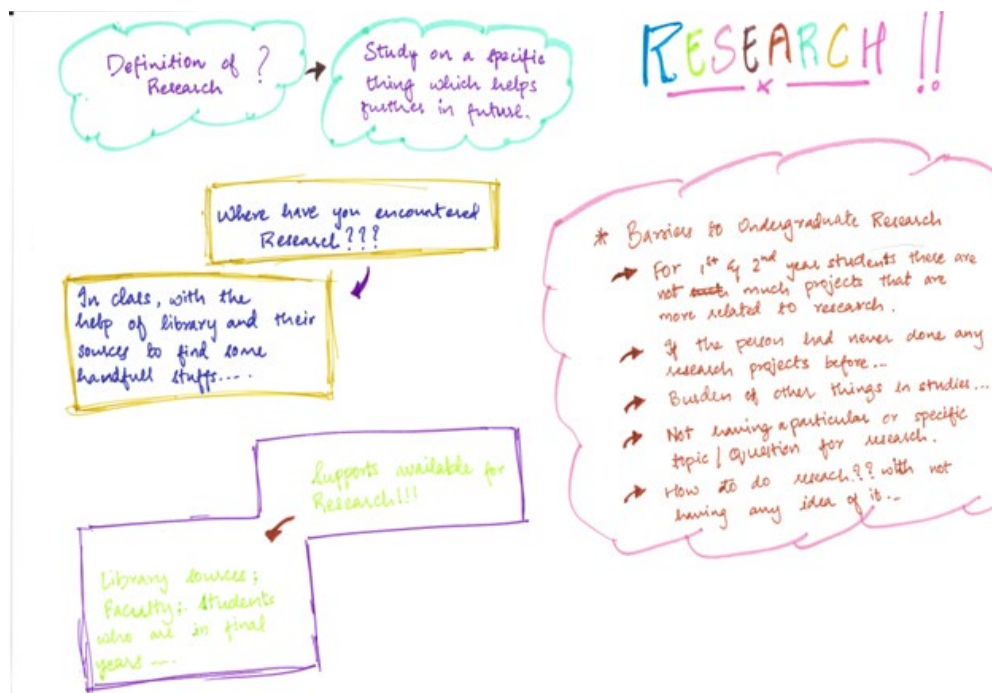 RESEARCH !!
Definition of ?
Research
Study on a specific
thing which helps
further in future.
Where have you encountered
Research???
In class, with the
help of library and their
sources to find some
handfull stuffs....
Supports available for
Research!!!
Library sources;
Faculty; students
who are in final
years....
* Barriers to Undergraduate Research
For 1st & 2nd year students there are
not much projects that are
more related to research.
If the person had never done any
research projects before...
Burden of other things in studies...
Not having a particular or specific
topic/question for research.
How to do reseach?? with not
having any idea of it...